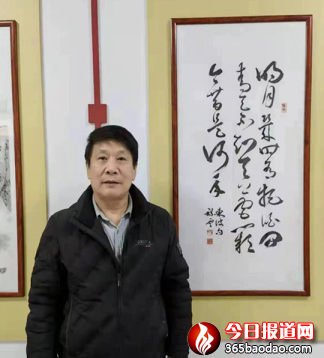 明月几时有把酒问
青天不知天上宫阙
今昔是何年
东坡句
今日报道网
365baodao.com